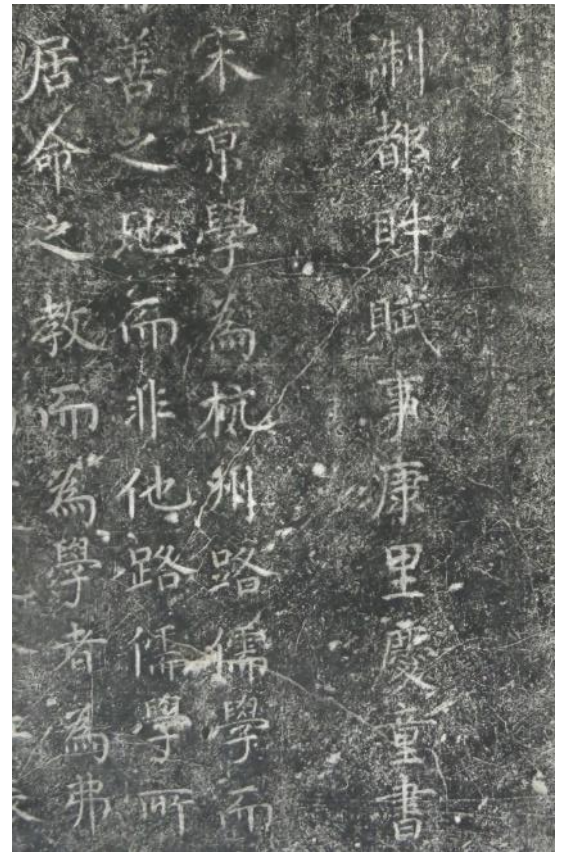 制都財賦事康里慶童書
宋京學為杭州路儒學而
善之地而非他路儒學所
居命之教而為學者為弗